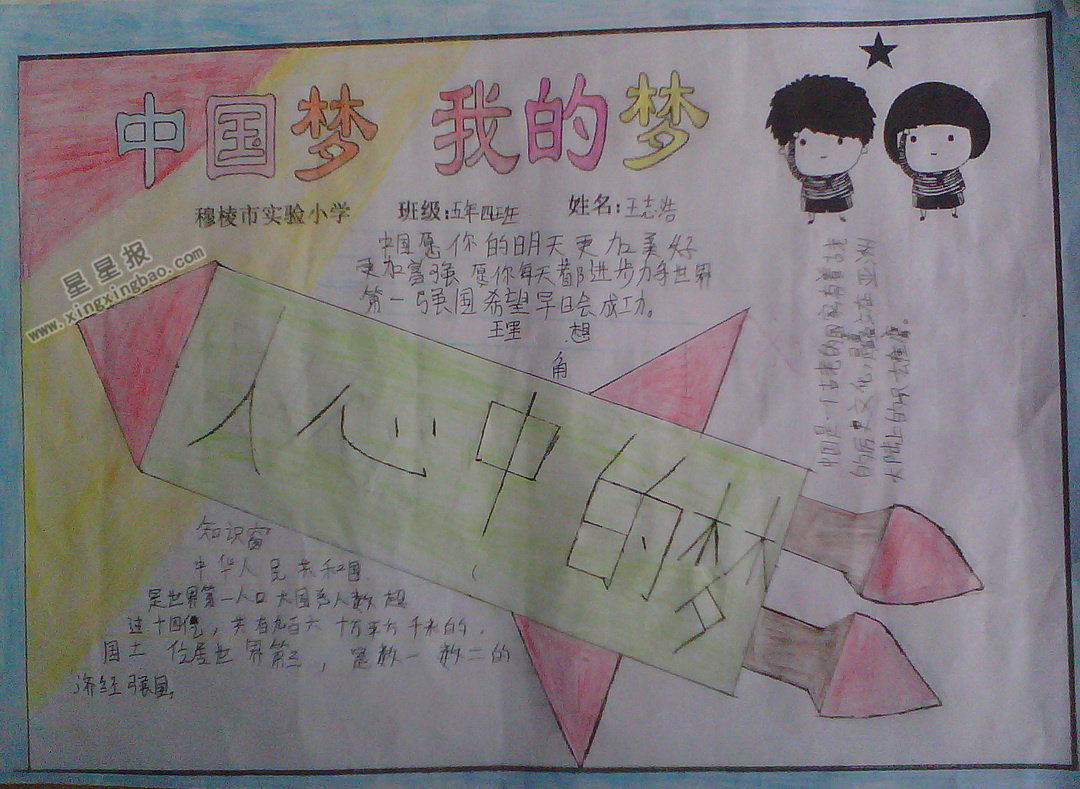 中国梦 我的梦
穆棱市实验小学 班级:五年四班 姓名:王志浩
星星报
www.xingxingbao.com
中国愿你的明天更加美好
更加富强 愿你每天都进步力争世界
第一强国希望早日会成功。
理 想
角
人心中的梦
中国是一个古老的国家有着
的历史文化,矗立在亚洲
大陆上的
知识窗
中华人民共和国
是世界第一人口大国总人数超
过十四亿,共有九百六十万平方千米的,
国土 位居世界第三,是数一数二的
济经强国。